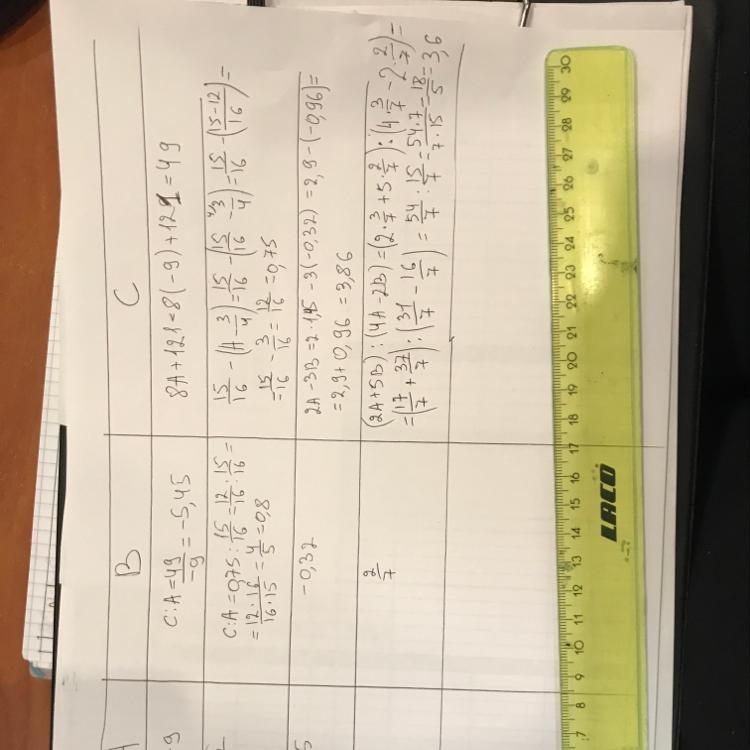 B
C
C:A=49/-9=-5,45
8A+121=8(-9)+121=49
C:A=0,75:15/16=12/16:15/16=
=12·16/16·15=4/5=0,8
15/16-(A-3/4)=15/16-(15/16-3/4)=15/16-(15-12/16)=
=15/16-3/16=12/16=0,75
-0,32
2A-3B=2·1,45-3(-0,32)=2,9-(-0,96)=
=2,9+0,96=3,86
2/7
(2A+5B):(4A-2B)=(2·3/7+5·2/7):(4·3/7-2·2/7)=
=(17/7+37/7):(31/7-16/7)=54/7:15/7=54·7/7·15=18/5=3,6
7 8 9 10 11 12 13 14 15 16 17 18 19 20 21 22 23 24 25 26 27 28 29 30
LACO